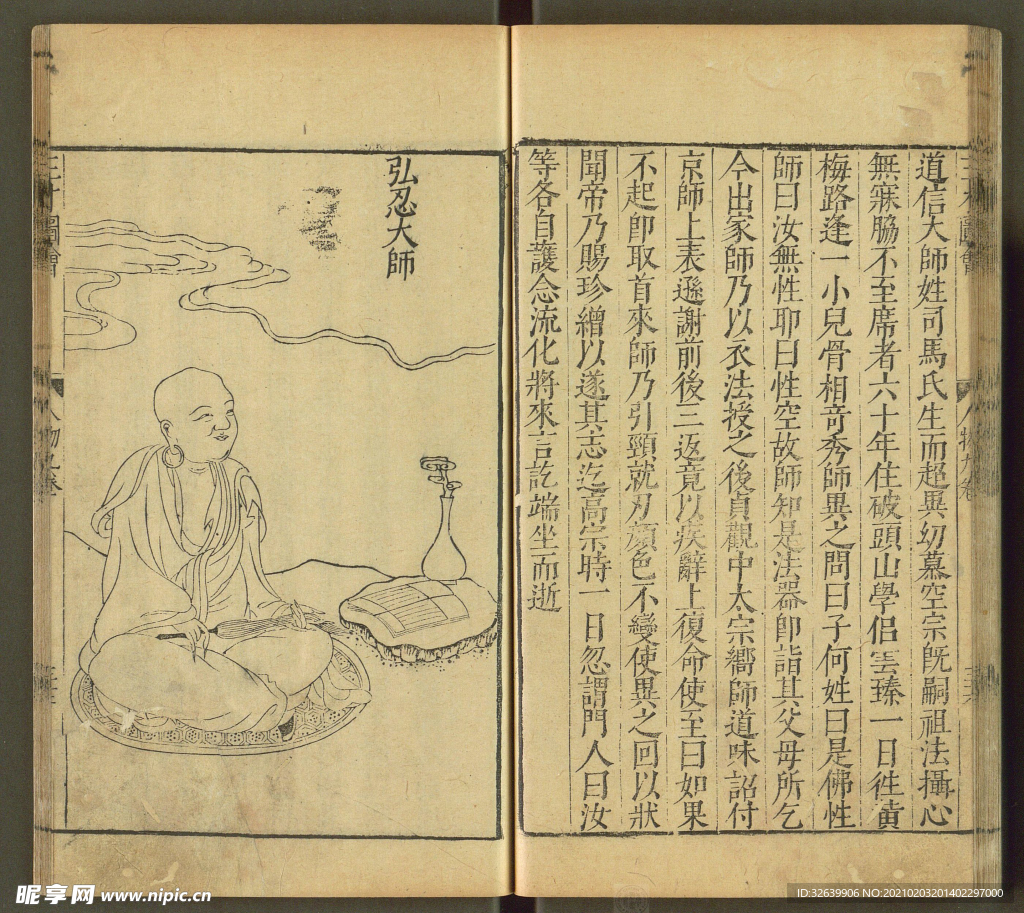 道信大師姓司馬氏生而超異幼慕空宗旣嗣祖法攝心
無寐脇不至席者六十年住破頭山學侶雲臻一日徃黃
梅路逢一小兒骨相竒秀師異之問曰子何姓曰是佛性
師曰汝無性耶曰性空故師知是法器卽詣其父母所乞
令出家師乃以衣法授之後貞觀中太宗嚮師道味詔付
京師上表遜謝前後三返竟以疾辭上復命使至曰如果
不起卽取首來師乃引頸就刃顏色不變使異之回以狀
聞帝乃賜珍繒以遂其志迄高宗時一日忽謂門人曰汝
等各自護念流化將來言訖端坐而逝
弘忍大師
三才圖會
人物九卷
昵享网 www.nipic.cn
ID:32639906 NO:20210203201402297000